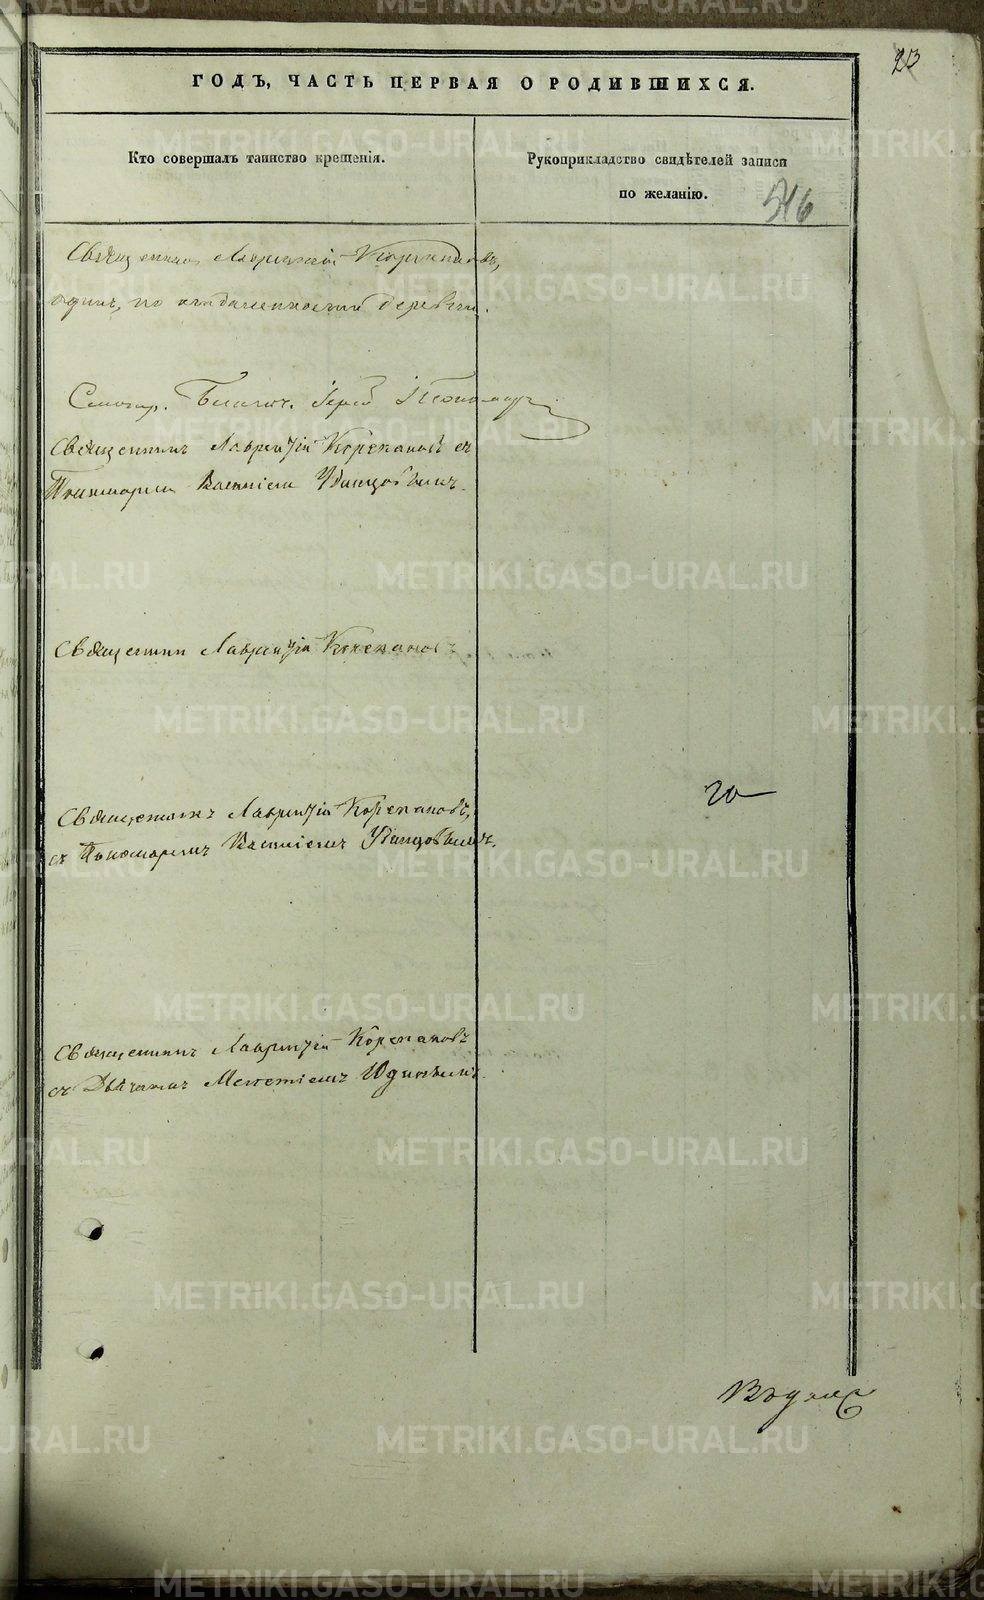 23
ГОДЪ, ЧАСТЬ ПЕРВАЯ О РОДИВШИХСЯ.
Кто совершалъ таинство крещенія.
Рукоприкладство свидѣтелей записи
по желанію.
516
Священникъ Лаврентій Корепановъ,
одинъ, по отдаленности деревни.
Священникъ Лаврентій Корепановъ съ
Пономаремъ Василіемъ
Священникъ Лаврентій Корепановъ
Священникъ Лаврентій Корепановъ,
съ Пономаремъ Василіемъ
20
Священникъ Лаврентій Корепановъ
съ Дьячкомъ Мелетіемъ Юдинымъ.
METRIKI.GASO-URAL.RU